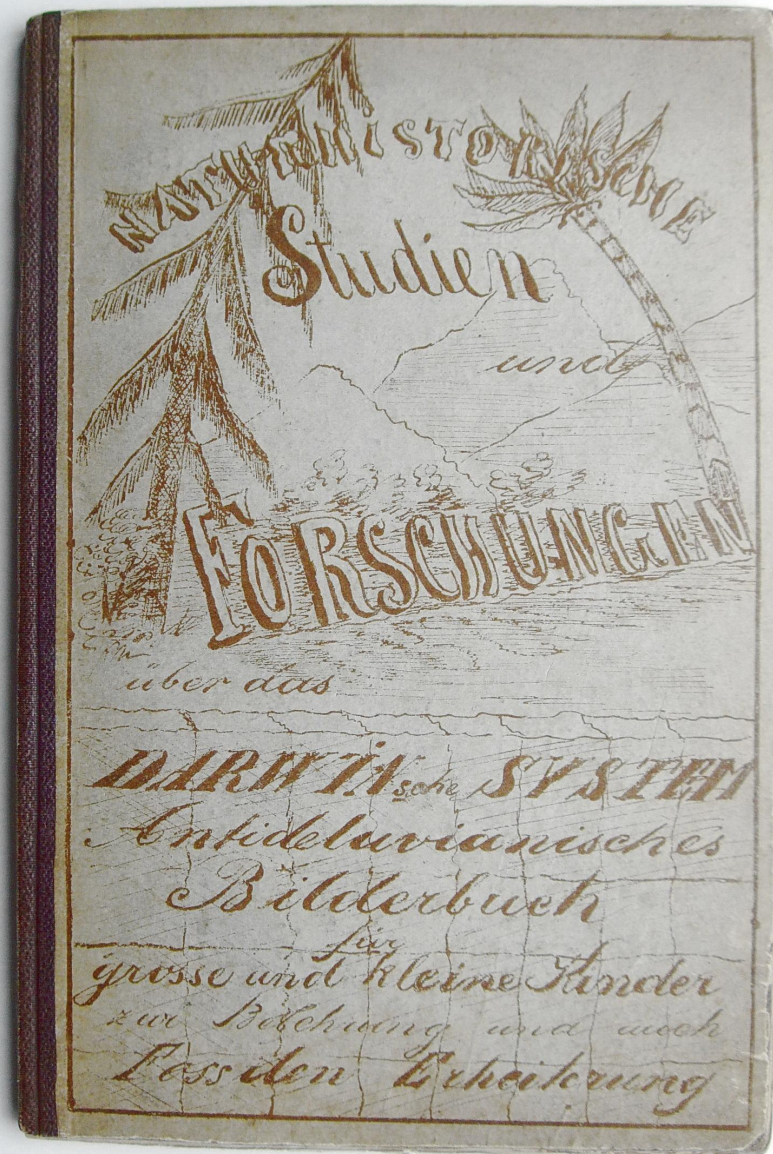 NATURHISTORISCHE
Studien
und
FORSCHUNGEN
über das
DARWINsche SYSTEM
Antideluvianisches
Bilderbuch
für
grosse und kleine Kinder
zur Belehrung und auch
Fossilen Erheiterung